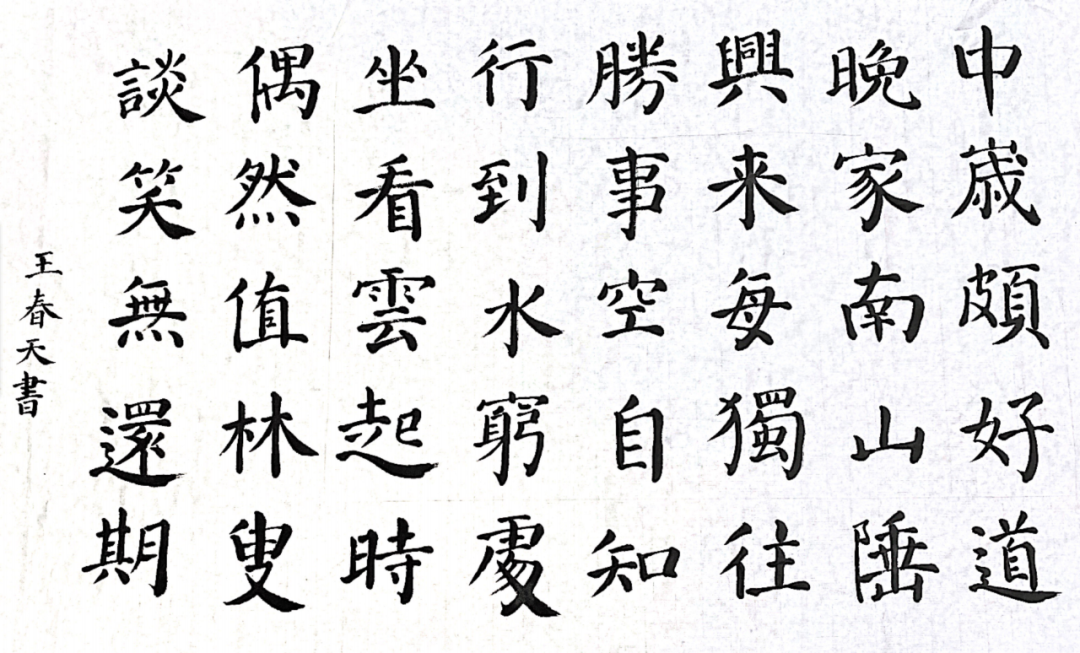 中歲頗好道
晚家南山陲
興来每獨往
勝事空自知
行到水窮處
坐看雲起時
偶然值林叟
談笑無還期
王春天書